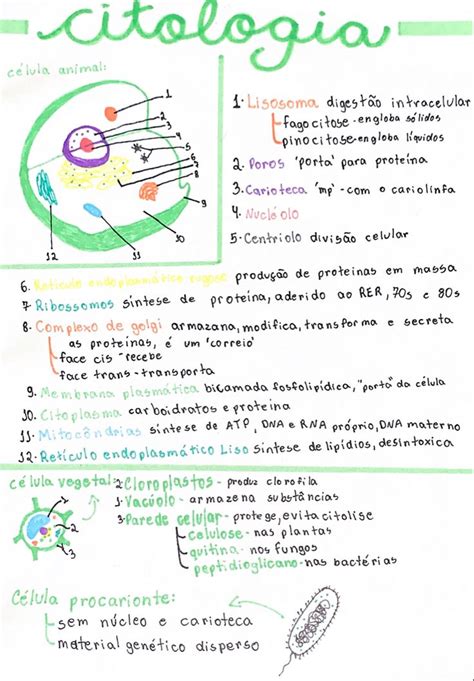 citologia
célula animal:
1
2
3
4
5
6
7
8
9
10
11
12
1. Lisosoma digestão intracelular
fagocitose - engloba sólidos
pinocitose - engloba líquidos
2. Poros "porta" para proteína
3. Carioteca "mp" - com o cariolinfa
4. Nucléolo
5. Centriolo divisão celular
6. Retículo endoplasmático rugoso produção de proteinas em massa
7. Ribossomos síntese de proteína, aderido ao RER, 70s e 80s
8. Complexo de golgi armazana, modifica, transforma e secreta
as proteínas, é um "correio"
face cis - recebe
face trans - transporta
9. Membrana plasmática bicamada fosfolipídica, "porta" da célula
10. Citoplasma carboidratos e proteina
11. Mitocôndrias síntese de ATP, DNA e RNA próprio, DNA materno
12. Retículo endoplasmático Liso síntese de lipídios, desintoxica
célula vegetal: 2. Cloroplastos - produz clorofila
1. Vacúolo - armazena substâncias
3. Parede celular - protege, evita citolise
celulose - nas plantas
quitina - nos fungos
peptidioglicano - nas bactérias
1
2
3
Célula procarionte:
sem núcleo e carioteca
material genético disperso